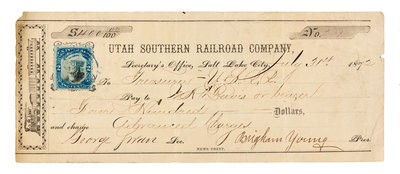 $400 00/100 No.
UTAH SOUTHERN RAILROAD COMPANY,
Secretary's Office, Salt Lake City, July 31st 1872
To Treasurer U. S. R. R.
Pay to or bearer
Four Hundred Dollars,
and charge Account
George Swan Sec. Brigham Young Pres.
NEWS PRINT.